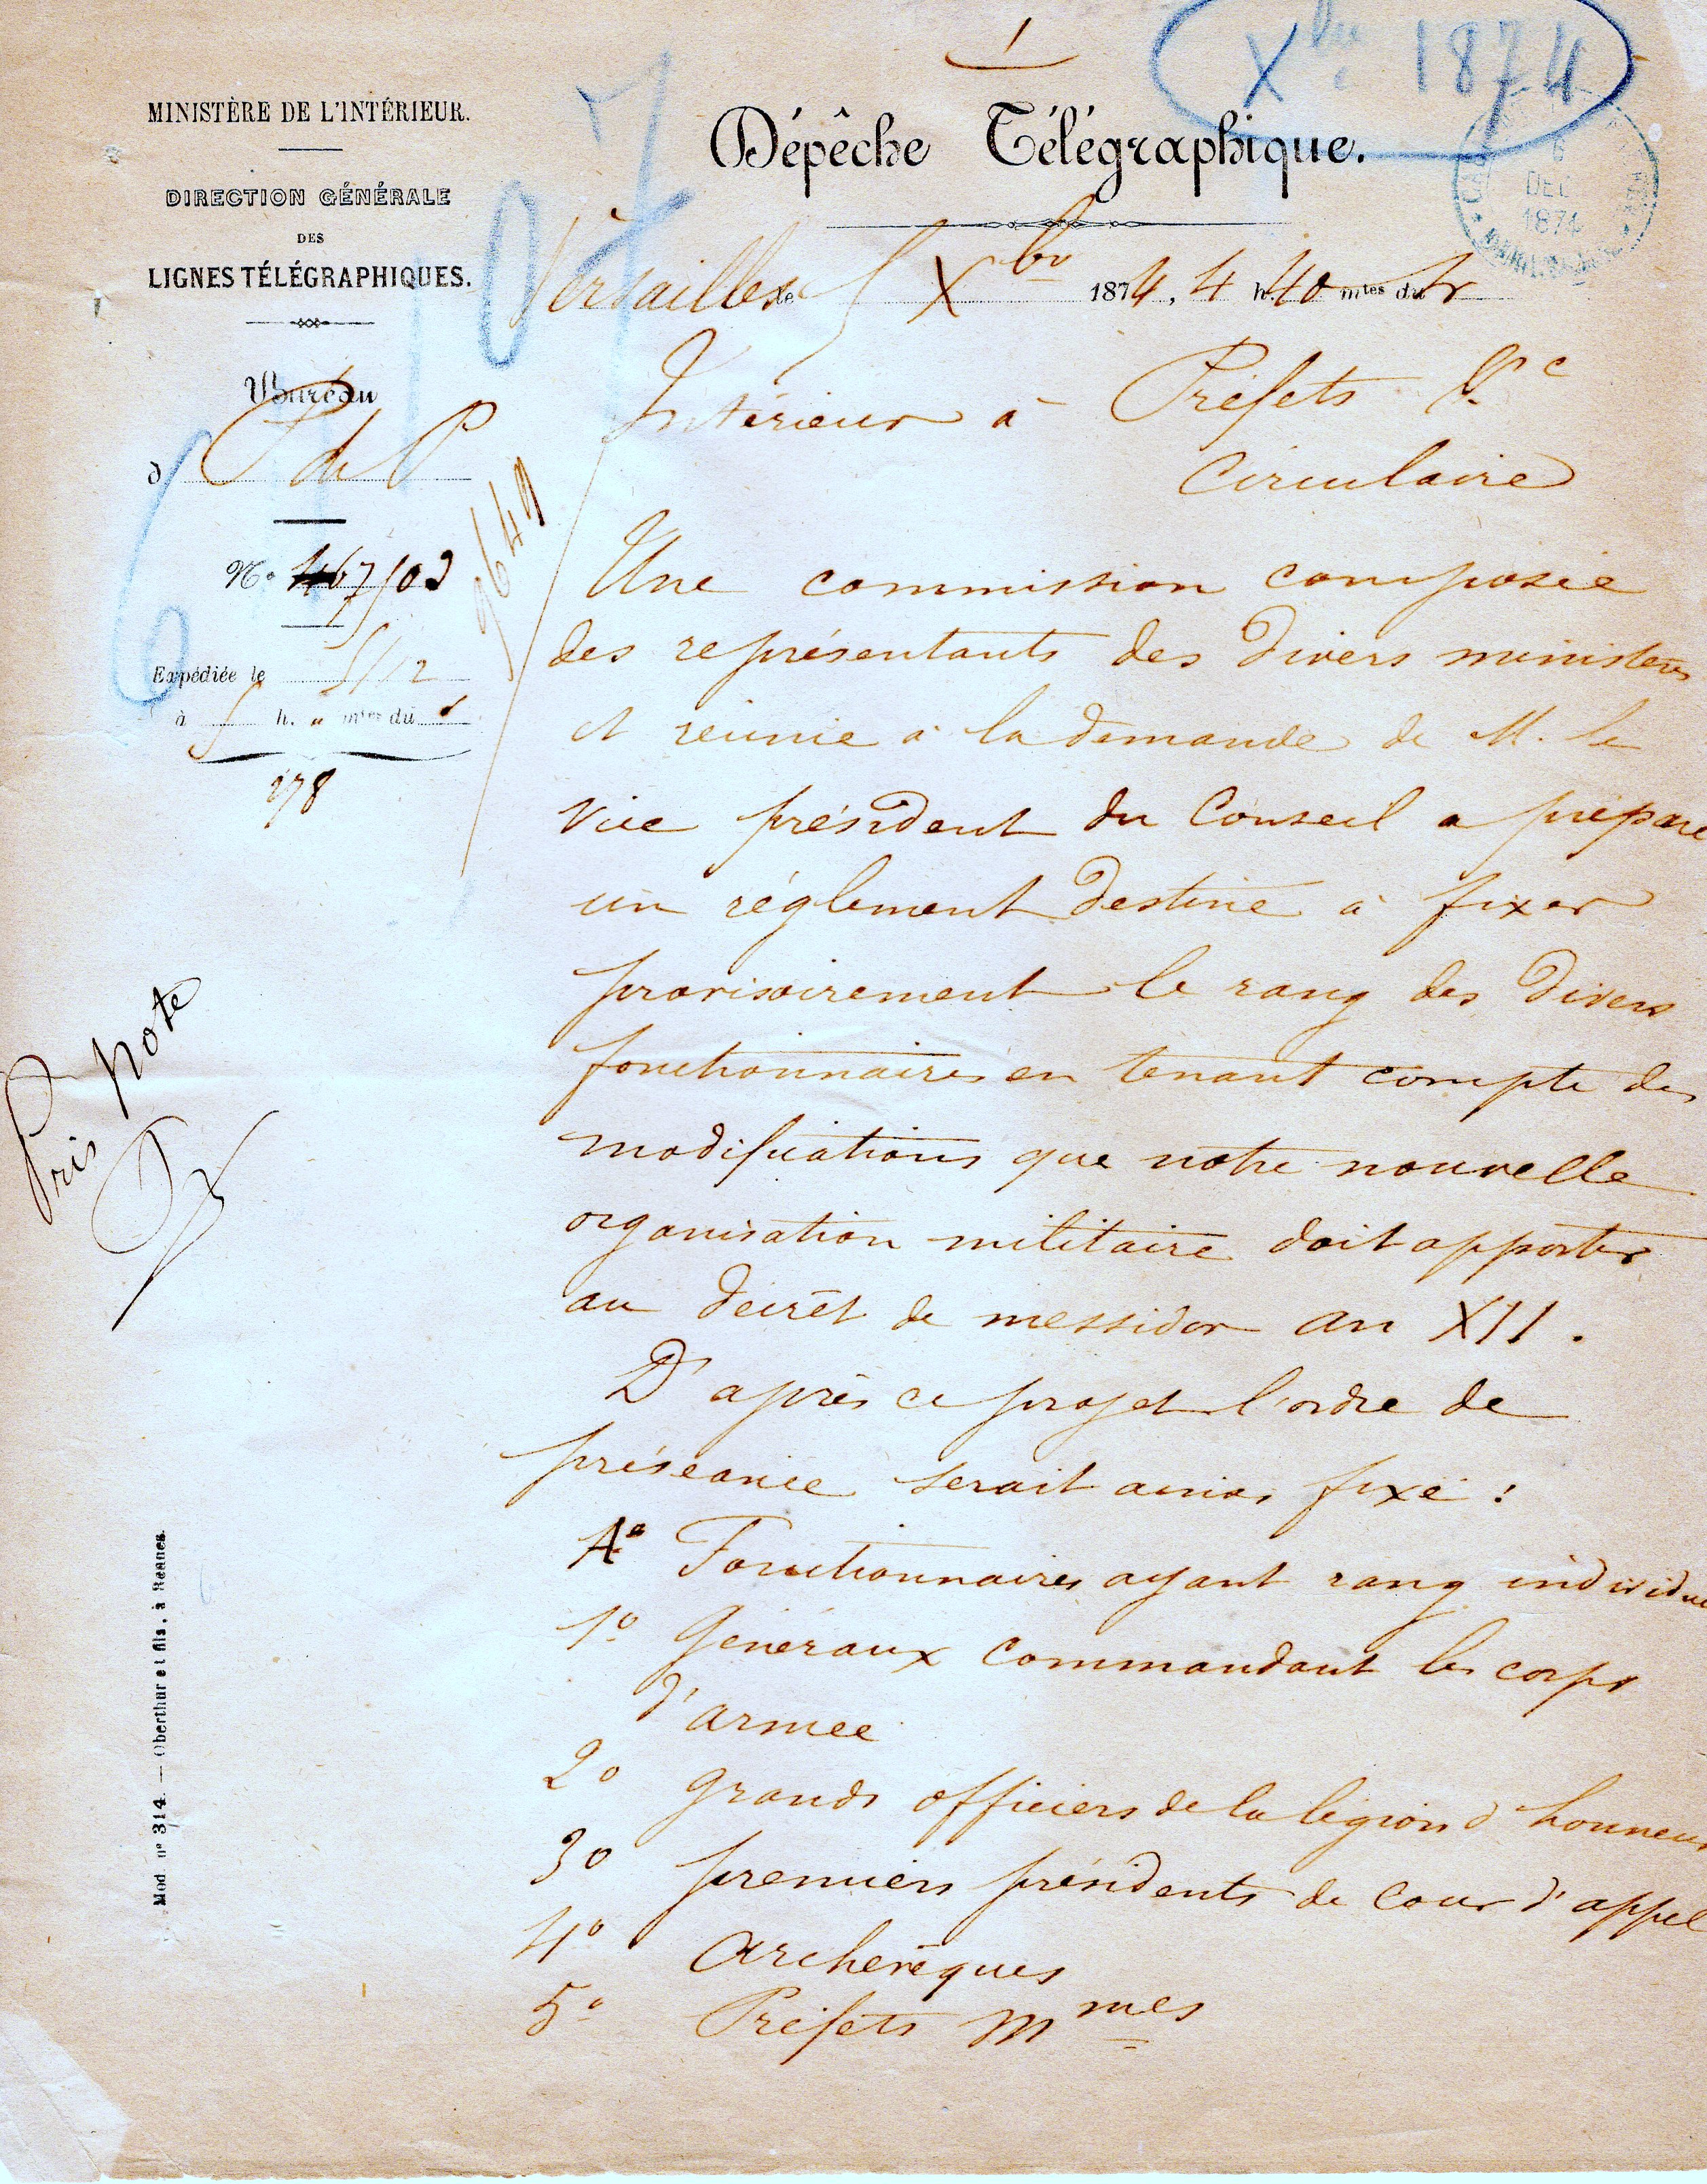 1
Xbre 1874
MINISTÈRE DE L'INTÉRIEUR.
DIRECTION GÉNÉRALE
DES
LIGNES TÉLÉGRAPHIQUES.
Bureau
d P de P
N° 467/03
9649
Expédiée le 5/12
à 5 h. " mtes du s
178
Pris note
Mod. n° 314. — Oberthur et fils, à Rennes.
107
6
Dépêche Télégraphique.
6
DEC
1874
Versailles le 5 Xbre 1874, 4 h. 40 mtes du s
Intérieur à Préfets &c
Circulaire
Une commission composée
des représentants des divers ministères
et réunie à la demande de M. le
vice président du Conseil a préparé
un réglement destiné à fixer
provisoirement le rang des divers
fonctionnaires en tenant compte des
modifications que notre nouvelle
organisation militaire doit apporter
au décrêt de messidor an XII.
D'après ce projet l'ordre de
préséance serait ainsi fixé :
A° Fonctionnaires ayant rang individuel
1° Généraux commandant les corps
d'armée
2° grands officiers de la légion d'honneur
3° premiers présidents de cour d'appel
4° archevêques
5° Préfets Mmes